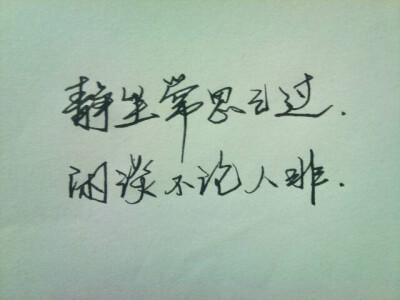 静坐常思己过.
闲谈不论人非.